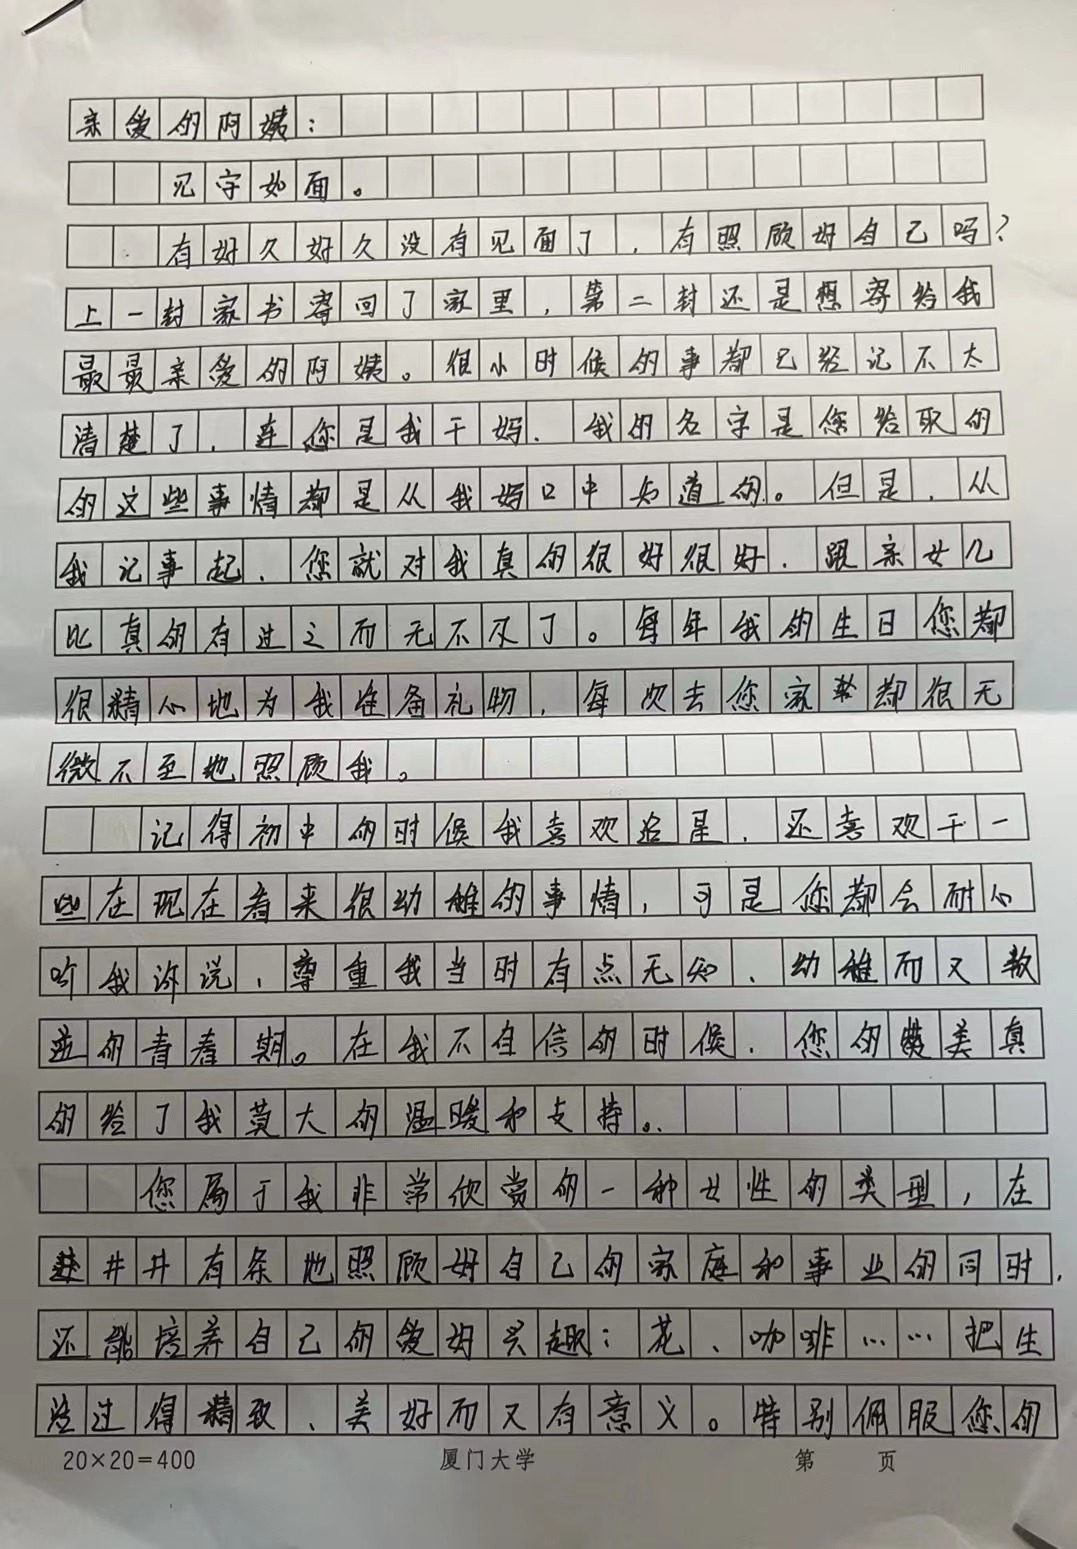 亲爱的阿姨：
见字如面。
有好久好久没有见面了，有照顾好自己吗？
上一封家书寄回了家里，第二封还是想寄给我
最最亲爱的阿姨。很小时候的事都已经记不太
清楚了，连您是我干妈、我的名字是您给取的
的这些事情都是从我妈口中知道的。但是，从
我记事起，您就对我真的很好很好，跟亲女儿
比真的有过之而无不及了。每年我的生日您都
很精心地为我准备礼物，每次去您家都很无
微不至地照顾我。
记得初中的时候我喜欢追星，还喜欢干一
些在现在看来很幼稚的事情，可是您都会耐心
听我诉说，尊重我当时有点无知、幼稚而又叛
逆的青春期。在我不自信的时候，您的赞美真
的给了我莫大的温暖和支持。
您属于我非常欣赏的一种女性的类型，在
井井有条地照顾好自己的家庭和事业的同时，
还能培养自己的爱好兴趣：花、咖啡……把生
活过得精致、美好而又有意义。特别佩服您的
20×20=400 厦门大学 第 页